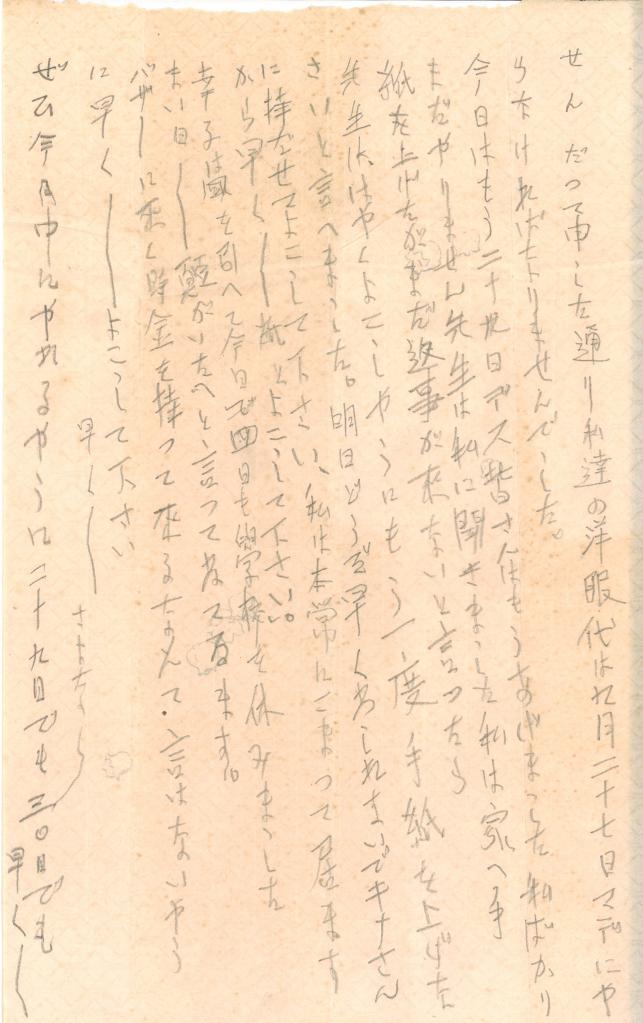 せんだつて申した通り私達の洋服代は九月二十七日マデにや
らなければなりませんでした。
今日はもう二十九日デス皆さんはもうあげました私ばかり
まだやりません先生は私に聞きました私は家へ手
紙を上げたがまだ返事が来ないと言つたら
先生は、はやくよこしやうにもう一度手紙を上げた
さいと言へました。明日どうぞ早くわしれないでキナさん
に持たせてよこして下さい、私は本当にこまつて居ます
から早く〳〵 とよこして下さい。
幸子は風を引へて今日で四日も学校を休みました
まい日〳〵頭がいたへと言つてねて居ます。
バザーに来る時金を持つて来るなんて・言はないやう
に早く〳〵よこして下さい
早く〳〵 さよなら
ぜひ今月中にやれるやうに二十九日でも三〇日でも
早く〳〵